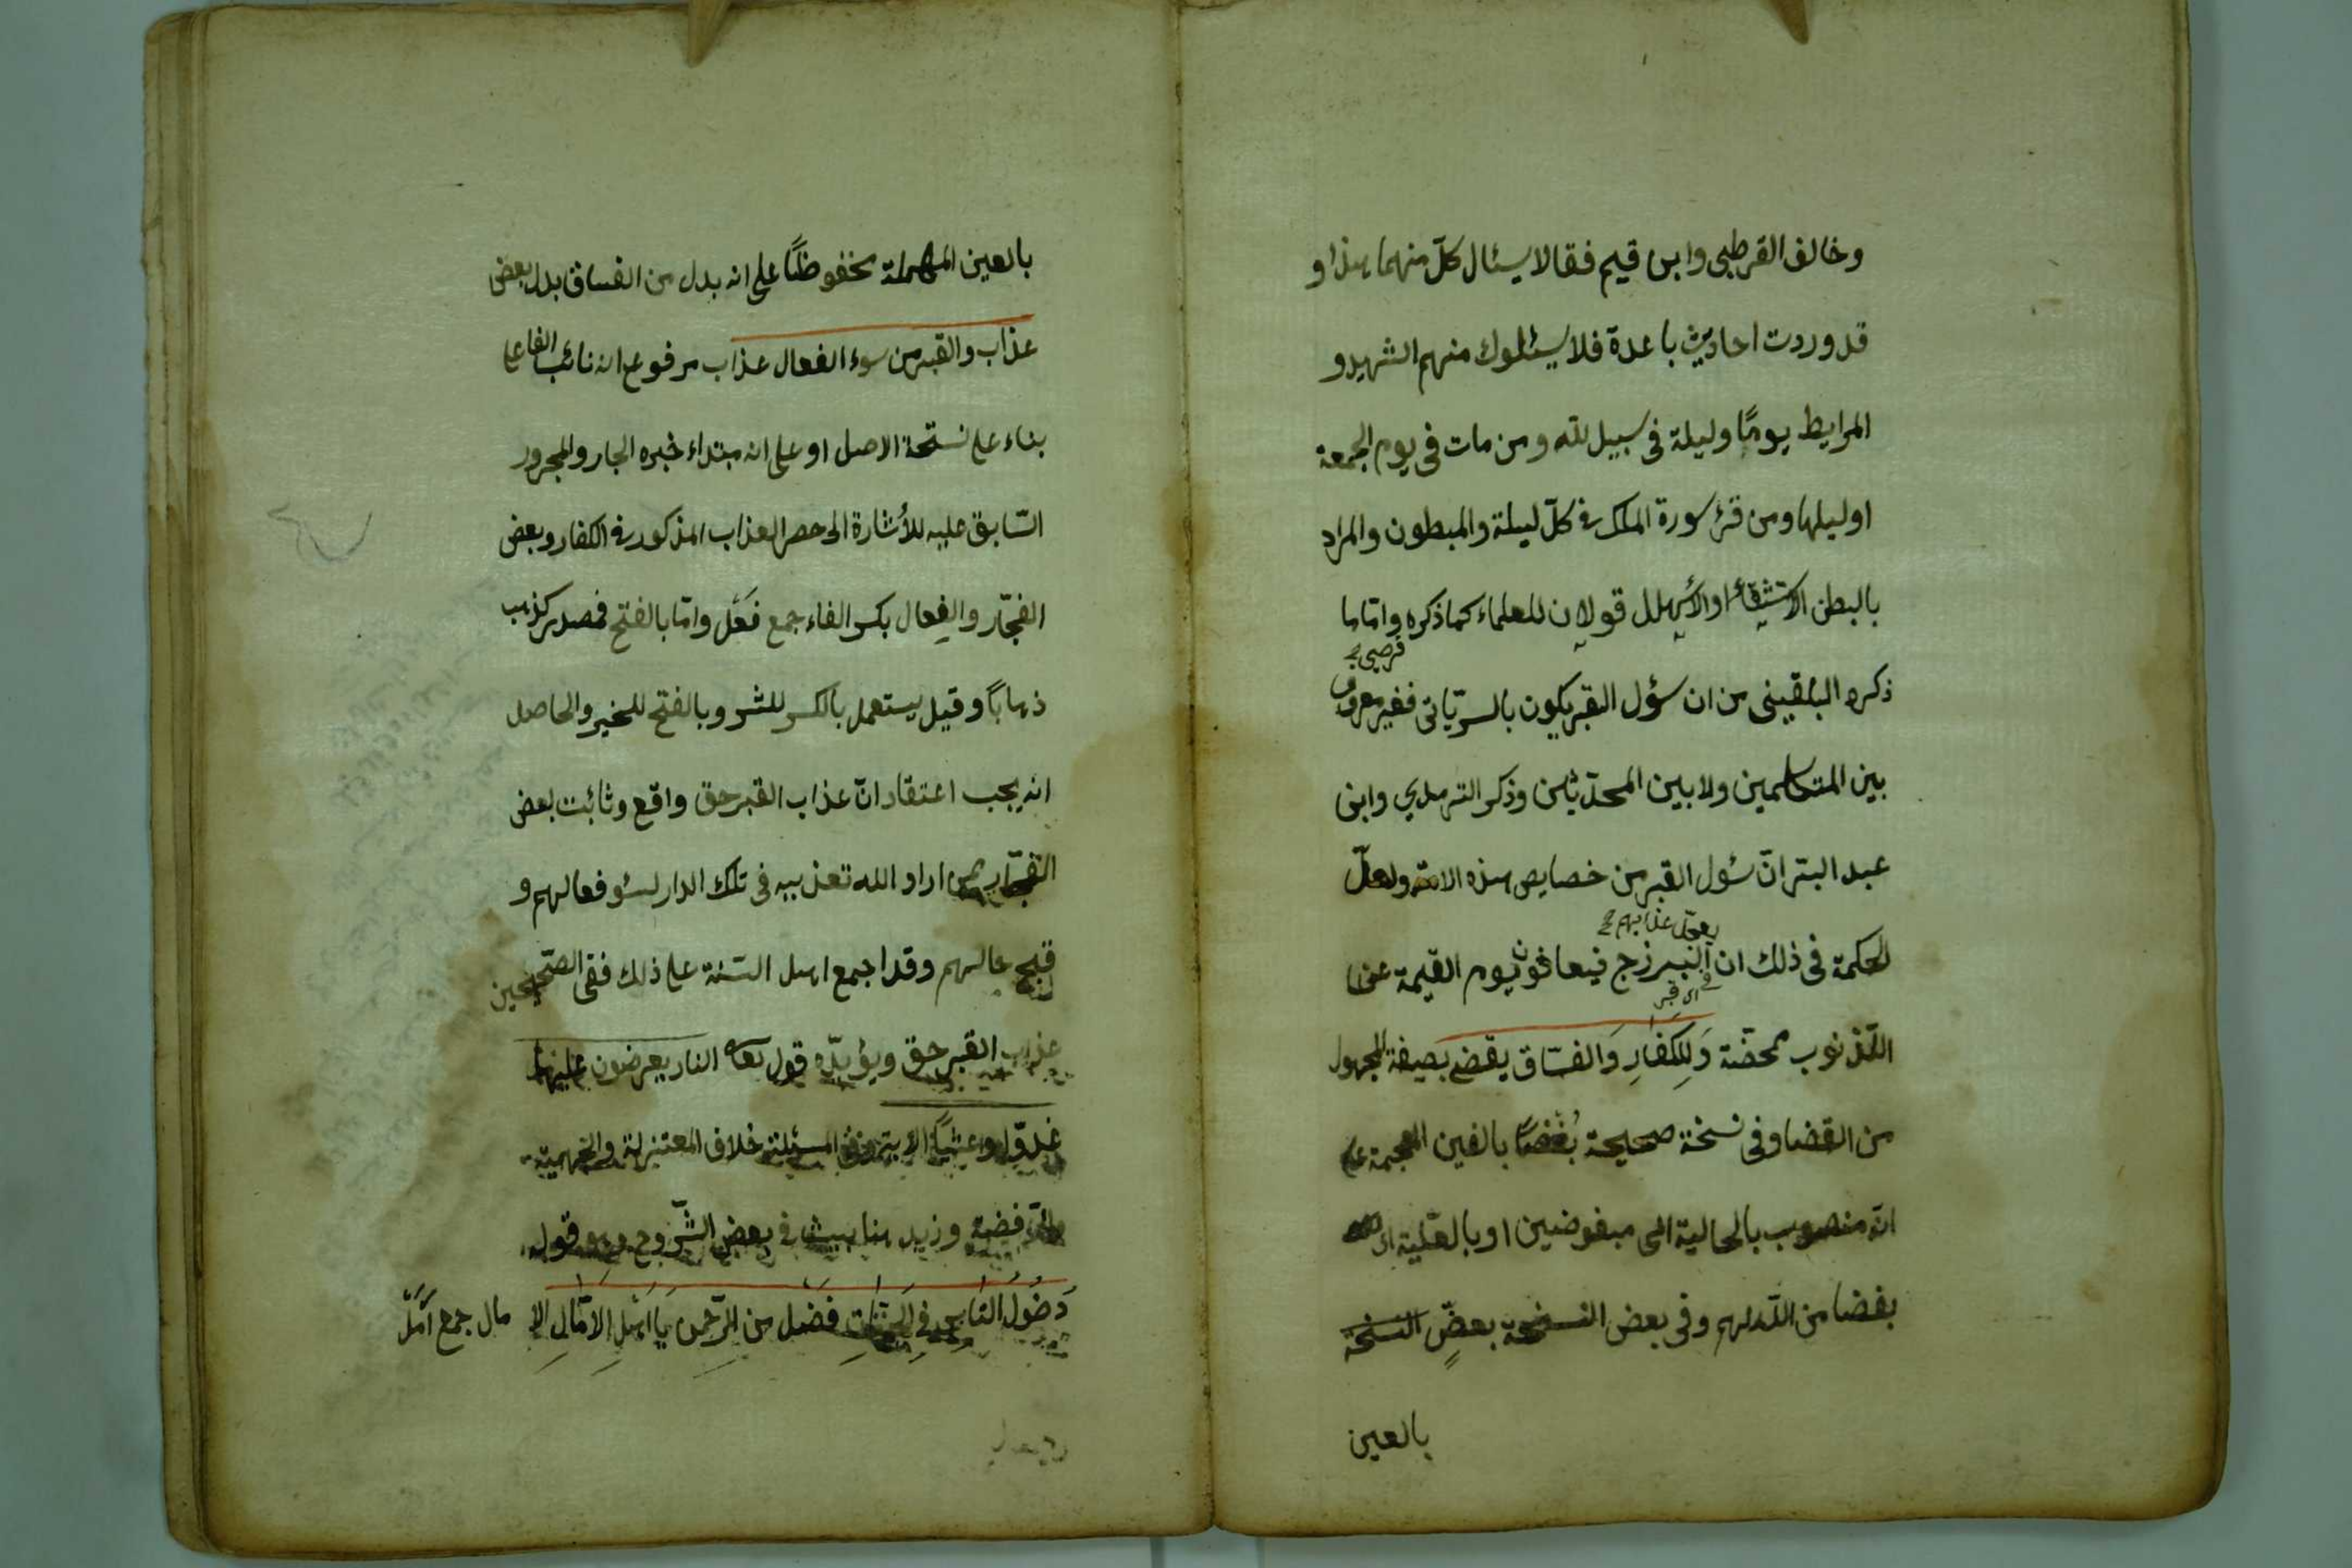 وخالف القرطبى وابن قيم فقالا يسئال كلّ منهما هذا و
قد وردت احاديث باعدة فلا يسئلوك منهم الشهيد و
المرابط يومًا وليلة فى سبيل لله ومن مات فى يوم الجمعة
اوليلها ومن قرء سورة الملك فى كلّ ليلة والمبطون والمراد
بالبطن الاستشقاء او الاسهلل قولان للعلماء كما ذكره وامّا ما
ذكره البلقينى من ان سؤل القبر يكون بالسريّانى فغير معروف
بين المتكلمين ولا بين المحدّثين وذكر الترمدي وابن
عبد البتر انّ سئول القبر من خصايص هذه الامّة ولعلّ
يعجّل عذابهم
الحكمة فى ذلك ان البرزح فيعافون يوم القيمة عن
الذنوب ممحصّة وَلِلكفارِ وَالفسّاق يقضى بصيغة المجهول
من القضا وفى نسخة صحيحة بُغْضًا بالغين المعجمة على
انّه منصوب بالحالية اى مبغوضين او بالعلّية اى
بغضا من اللّه لهم وفى بعض النسخة بعضٍ النسخة
بالعين
بالعين المهملة مخفوظًا على انه بدل من الفساق بدل بعض
عذاب والقبر من سوء الفعال عذاب مرفوع انه نائب الفاعل
بناء على نستحة الاصل او على انه مبتداء خبره الجار والمجرور
السّابق عليه للأشارة الى حصر العذاب المذكور فى الكفار وبعض
الفجّار والفِعال بكسر الفاء جمع فعْل وامّا بالفتح فمصدر كذهب
ذهابًا وقيل يستعمل بالكسر للشر وبالفتح للخير والحاصل
انه يجب اعتقاد انّ عذاب القبر حق واقع وثابت لبعض
اراد الله تعذيبه فى تلك الدار لسؤ فعالهم و
قبح عالهم وقد اجمع اهل السّنة على ذلك ففى الصّحيحين
عذاب القبر حق ويؤيدّه قول تعا النار يعرضون عليها
غدوّا وعشيًّا الاية وفى المسئلة خلاف المعتزلة والجهميّة
والرّافضة وزيد هنا بيت فى بعض الشّروح وهو قوله
دَخولُ النّاس فى الجنّاتِ فَضْل من الرّحمن يَا اهْلِ الامَالِ الا مال جمع أَمَل